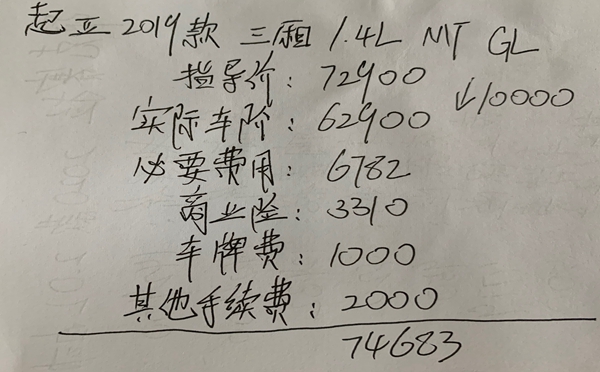 起亚2019款 三厢 1.4L MT GL
指导价：72900
↓10000
实际车价：62900
必要费用：6782
商业险：3310
车牌费：1000
其他手续费：2000
74683